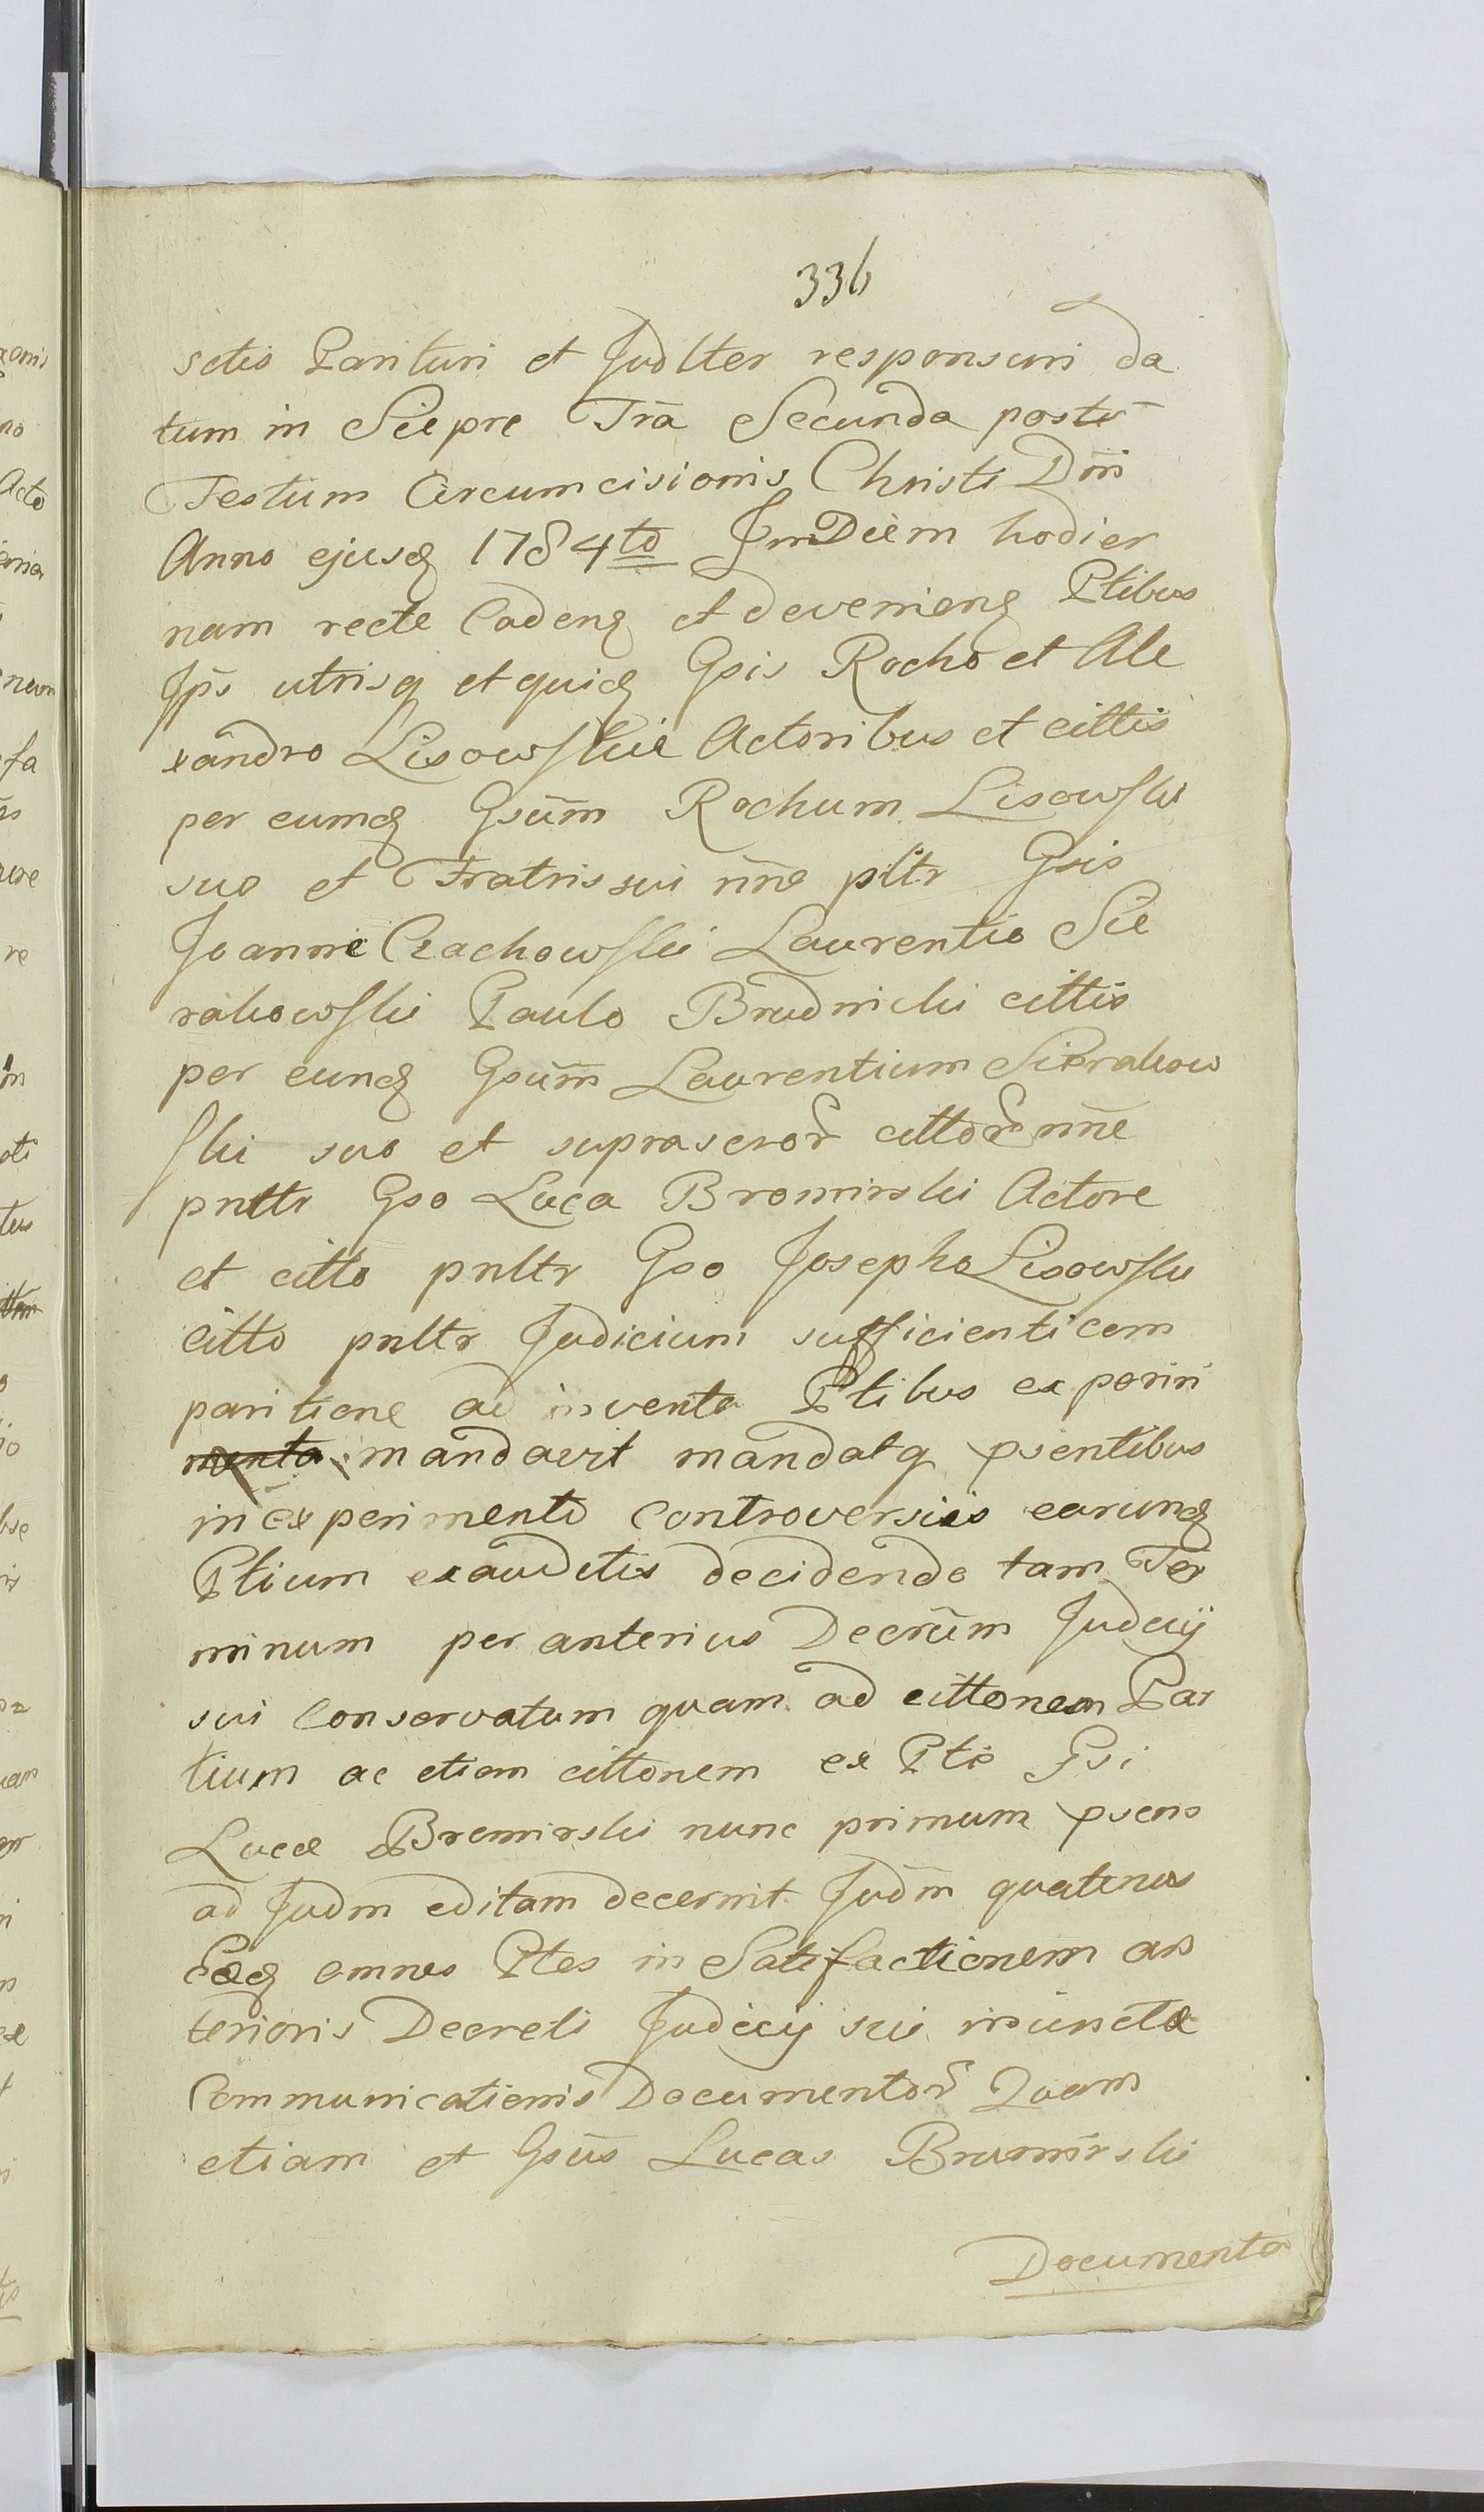 336
sctis Parituri et Judlter responsuri da
tum in Sierpc Fra Secunda post
Festum Circumcisionis Christi Dni
Anno ejusq 1784to In Diem hodier
nam recte Cadenq et devenienq Ptibus
Ips utrisq et quidq Gsis Rocho et Ale
xandro Lisowskie Actoribus et cittis
per eumq Gsum Rochum Lisowski
suo et Fratris sui nne pltr Gsis
Joanne Czachowski Laurentio Sie
rakowski Paulo Brudnicki cittis
per eunq Gsum Laurentium Sierakow
ski suo et suprascror cittor nne
pnltr Gso Luca Bromirski Actore
et citto pnltr Gso Josepho Lisowski
citto pnltr Judicium sufficienti com
paritione ad inventa Ptibus experiri
menta mandavit mandatq psentibus
in experimento Controversiis earunq
Ptium exauditis decidendo tam Ter
minum per anterius Decrum Judicij
sui Conservatum quam ad cittonem Par
tium ac etiam cittonem ex Pte Gsi
Lucæ Bromirski nunc primum psens
ad Judm editam decernit Judm quatenus
Eædq omnes Ptes in Satisfactionem an
terioris Decreti Judicij sui iniunctæ
Communicationis Documentor Quam
etiam et Gsus Lucas Bromirski
Documenta